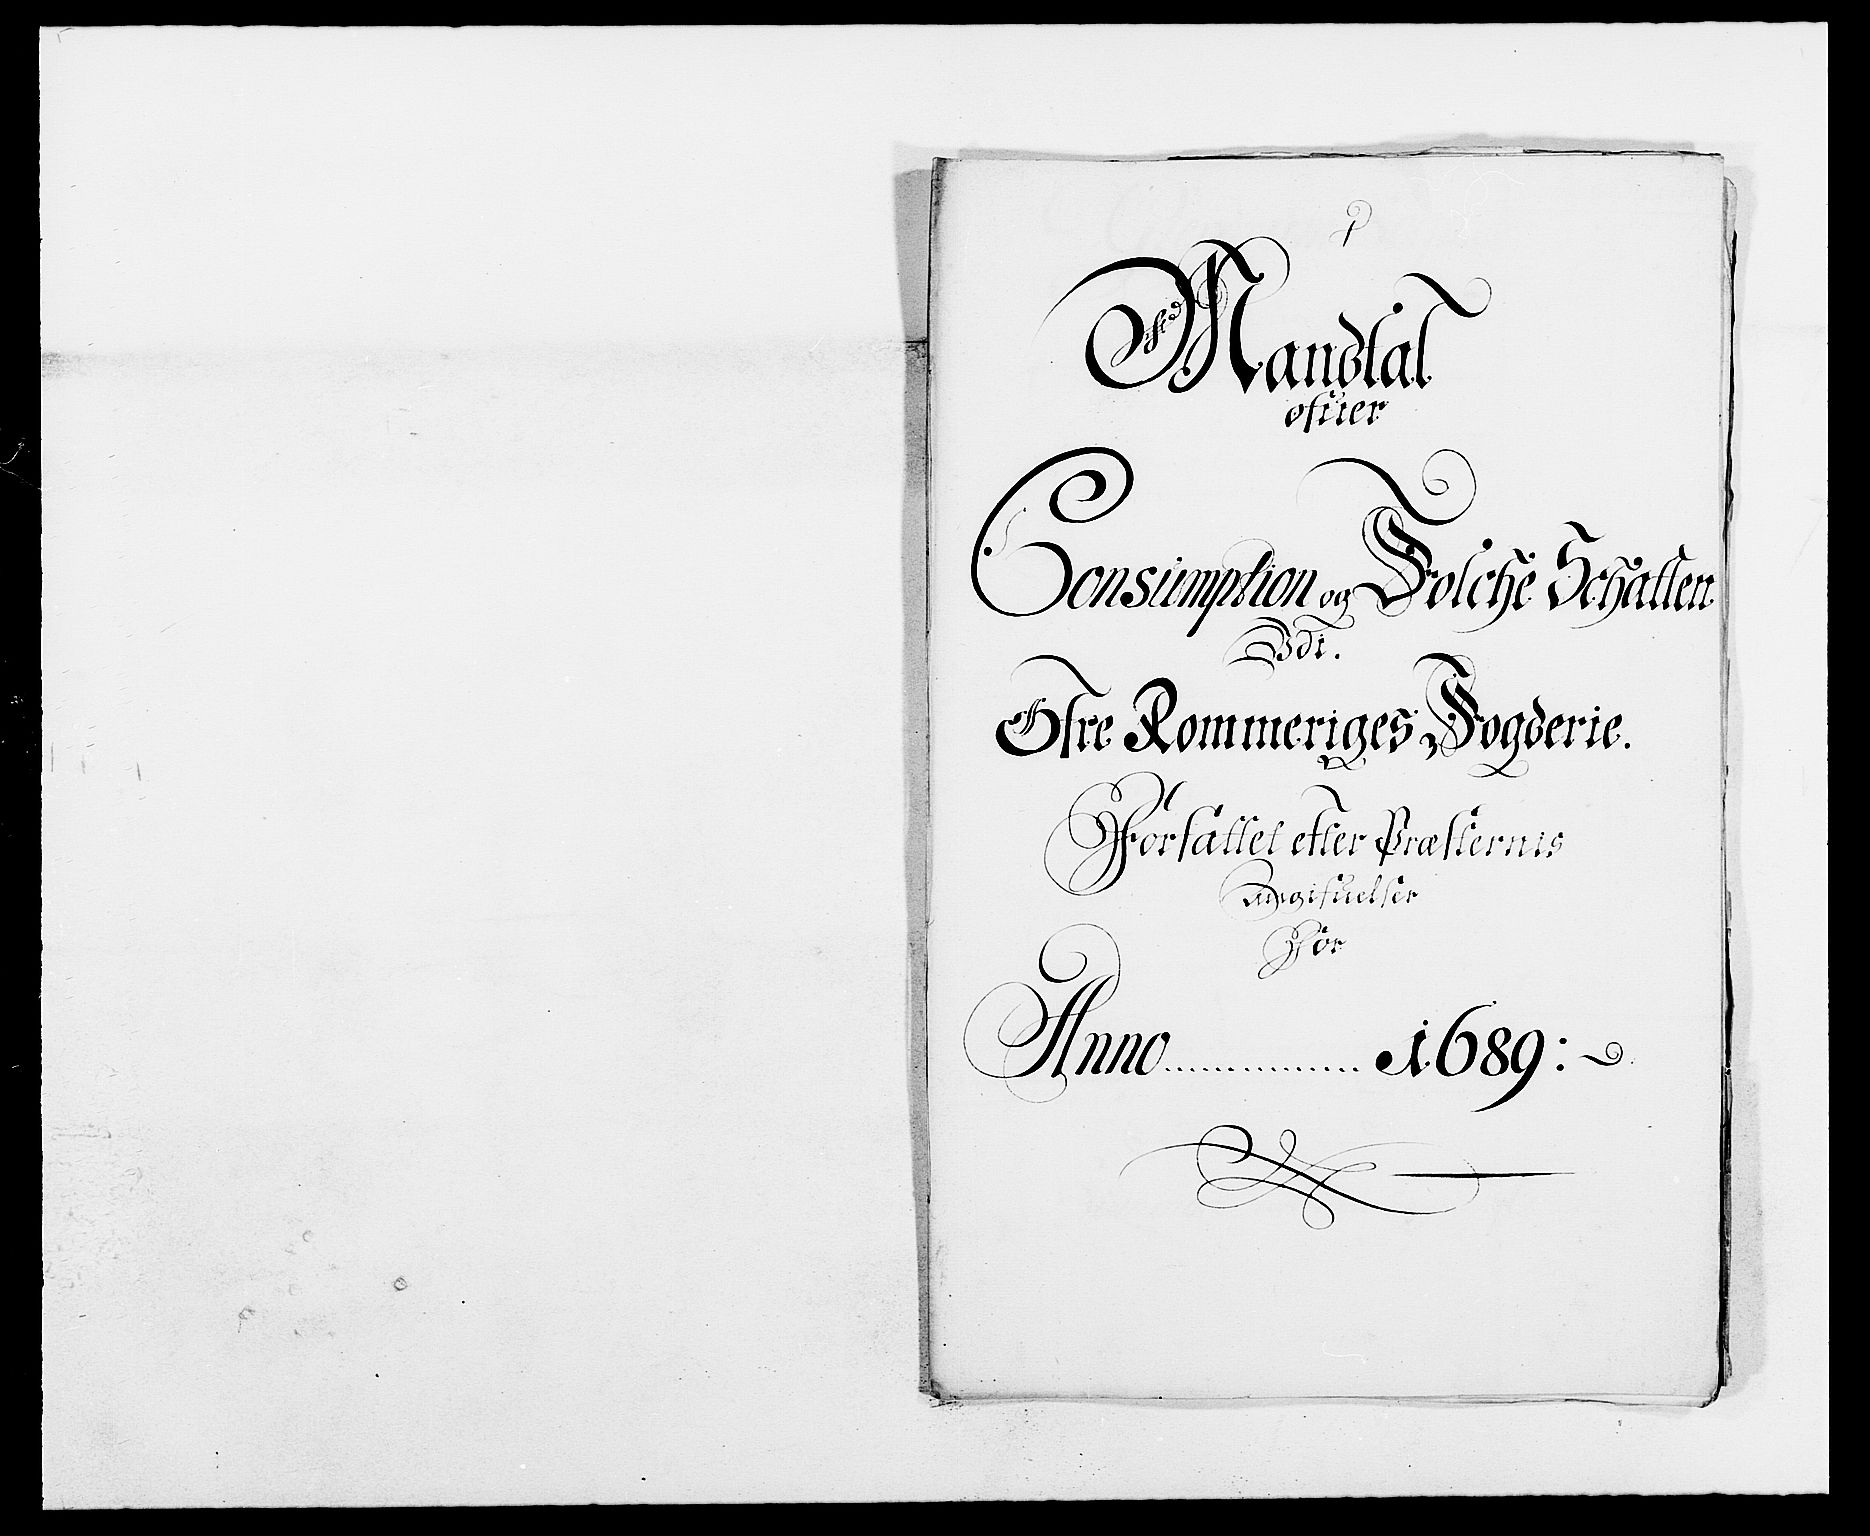 Mandtal
ofuer
Consumption og Folche Schatten
Vdi.
Øfre Rommeriges Fogderie.
Forfattet efter Præsternis
Angifuelser
For
Anno .............. 1689: